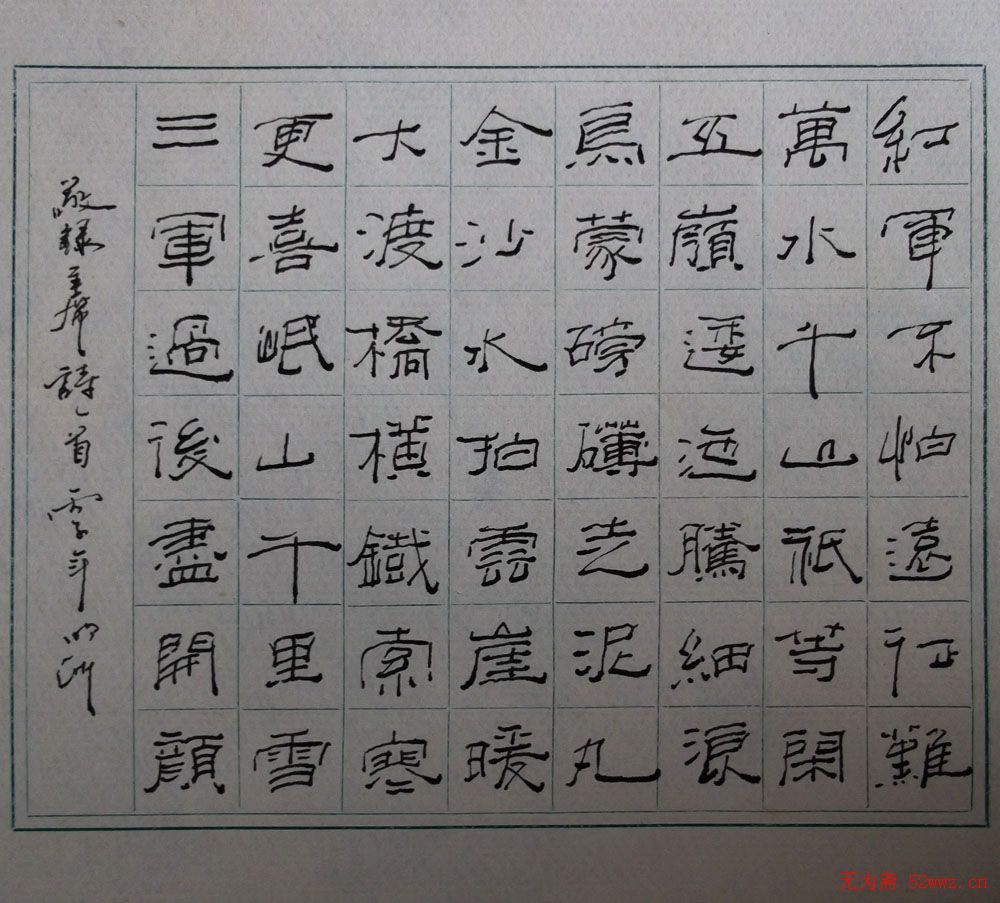 紅軍不怕遠征難
萬水千山祇等閑
五嶺逶迤騰細浪
烏蒙磅礴走泥丸
金沙水拍雲崖暖
大渡橋橫鐵索寒
更喜岷山千里雪
三軍過後盡開顏
敬録主席詩一首 年
无为斋 52wwz.cn